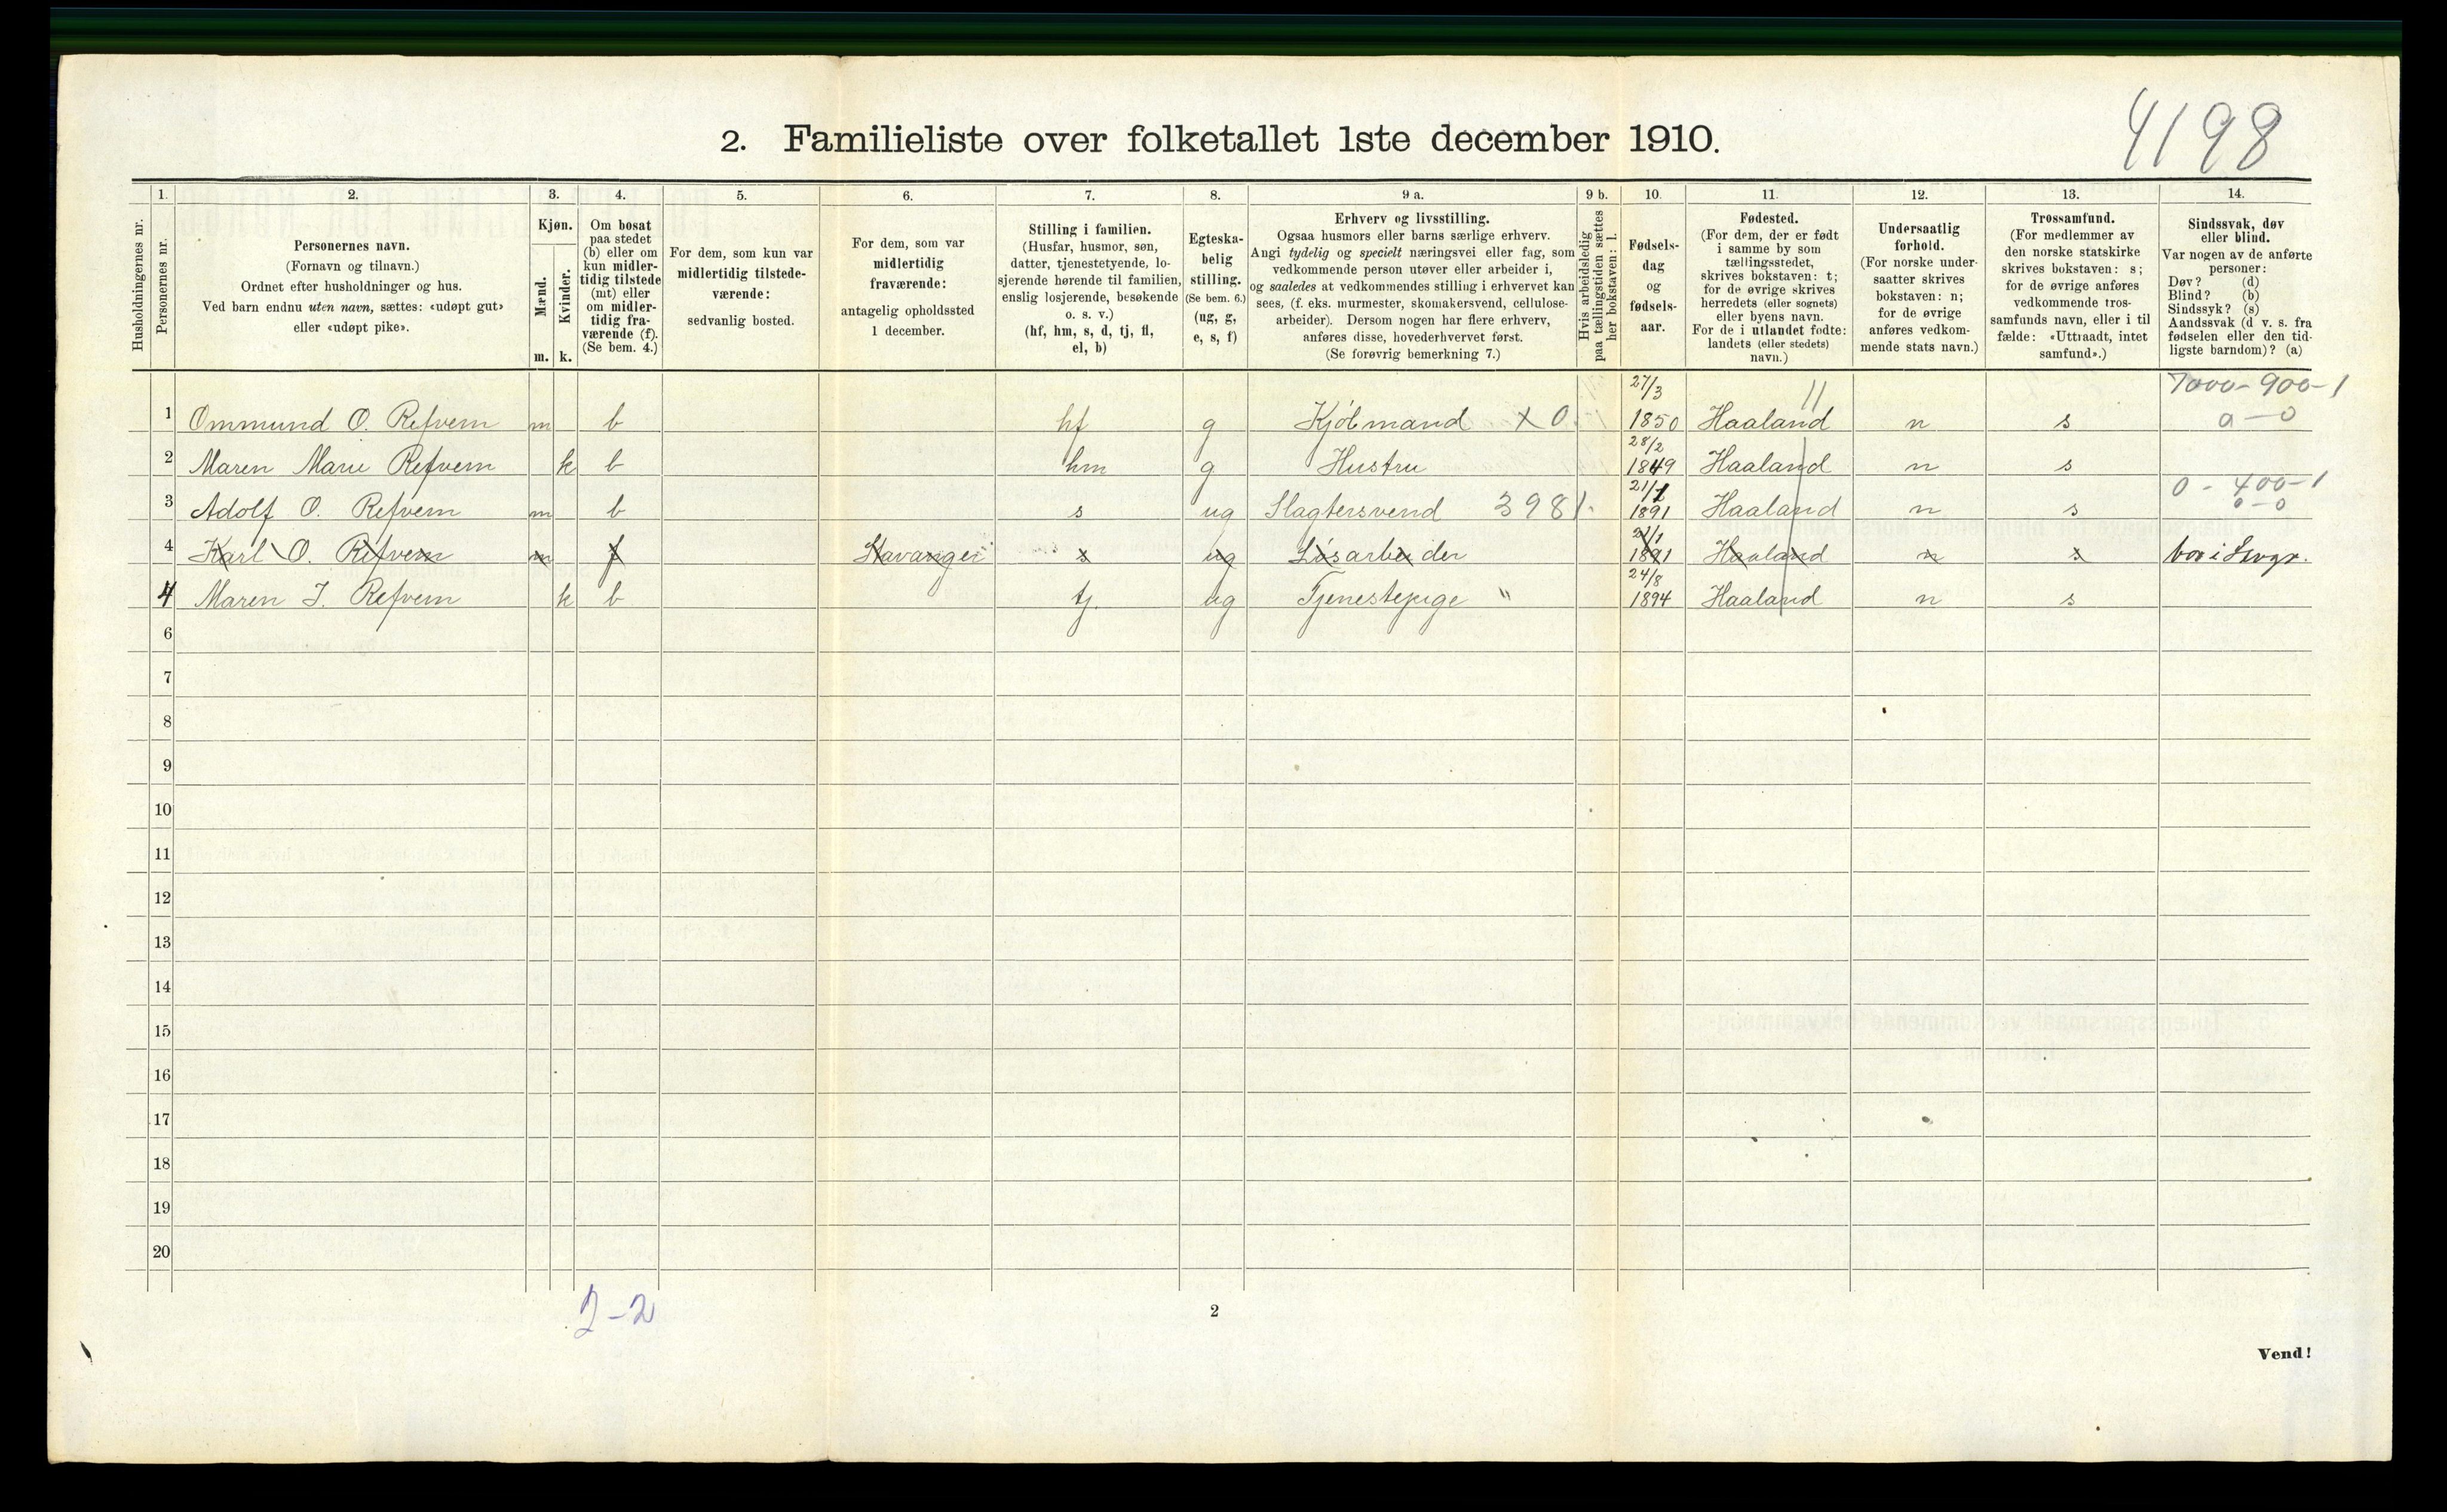 4198
2. Familieliste over folketallet 1ste december 1910.
1. 2. 3. 4. 5. 6. 7. 8. 9 a. 9 b. 10. 11. 12. 13. 14.
Husholdningernes nr.
Personernes nr.
Personernes navn.
(Fornavn og tilnavn.)
Ordnet efter husholdninger og hus.
Ved barn endnu uten navn, sættes: «udøpt gut»
eller «udøpt pike».
Kjøn.
Mænd.
Kvinder.
m. k.
Om bosat
paa stedet
(b) eller om
kun midler-
tidig tilstede
(mt) eller
om midler-
tidig fra-
værende (f).
(Se bem. 4.)
For dem, som kun var
midlertidig tilstede-
værende:
sedvanlig bosted.
For dem, som var
midlertidig
fraværende:
antagelig opholdssted
1 december.
Stilling i familien.
(Husfar, husmor, søn,
datter, tjenestetyende, lo-
sjerende hørende til familien,
enslig losjerende, besøkende
o. s. v.)
(hf, hm, s, d, tj, fl,
el, b)
Egteska-
belig
stilling.
(Se bem. 6.)
(ug, g,
e, s, f)
Erhverv og livsstilling.
Ogsaa husmors eller barns særlige erhverv.
Angi tydelig og specielt næringsvei eller fag, som
vedkommende person utøver eller arbeider i,
og saaledes at vedkommendes stilling i erhvervet kan
sees, (f. eks. murmester, skomakersvend, cellulose-
arbeider). Dersom nogen har flere erhverv,
anføres disse, hovederhvervet først.
(Se forøvrig bemerkning 7.)
Hvis arbeidsledig
paa tællingstiden sættes
her bokstaven: l.
Fødsels-
dag
og
fødsels-
aar.
Fødested.
(For dem, der er født
i samme by som
tællingsstedet,
skrives bokstaven: t;
for de øvrige skrives
herredets (eller sognets)
eller byens navn.
For de i utlandet fødte:
landets (eller stedets)
navn.)
Undersaatlig
forhold.
(For norske under-
saatter skrives
bokstaven: n;
for de øvrige
anføres vedkom-
mende stats navn.)
Trossamfund.
(For medlemmer av
den norske statskirke
skrives bokstaven: s;
for de øvrige anføres
vedkommende tros-
samfunds navn, eller i til
fælde: «Uttraadt, intet
samfund».)
Sindssvak, døv
eller blind.
Var nogen av de anførte
personer:
Døv? (d)
Blind? (b)
Sindssyk? (s)
Aandssvak (d v. s. fra
fødselen eller den tid-
ligste barndom)? (a)
27/3 11 7000-900-1
1 Ommund O. Refvem m b hf g Kjøbmand x 0. 1850 Haaland n s a-0
28/2
2 Maren Marie Refvem k b hm g Hustru 1849 Haaland n s
21/1 0-400-1
3 Adolf O. Refvem m b s ug Slagtersvend 3981. 1891 Haaland n s 0-0
21/1
4 Karl O. Refvem m f Stavanger s ug Løsarbeider 1891 Haaland n s bor i Svgr.
24/8
4 Maren J. Refvem k b tj. ug Tjenestepige " 1894 Haaland n s
6
7
8
9
10
11
12
13
14
15
16
17
18
19
20
2-2
2
Vend!